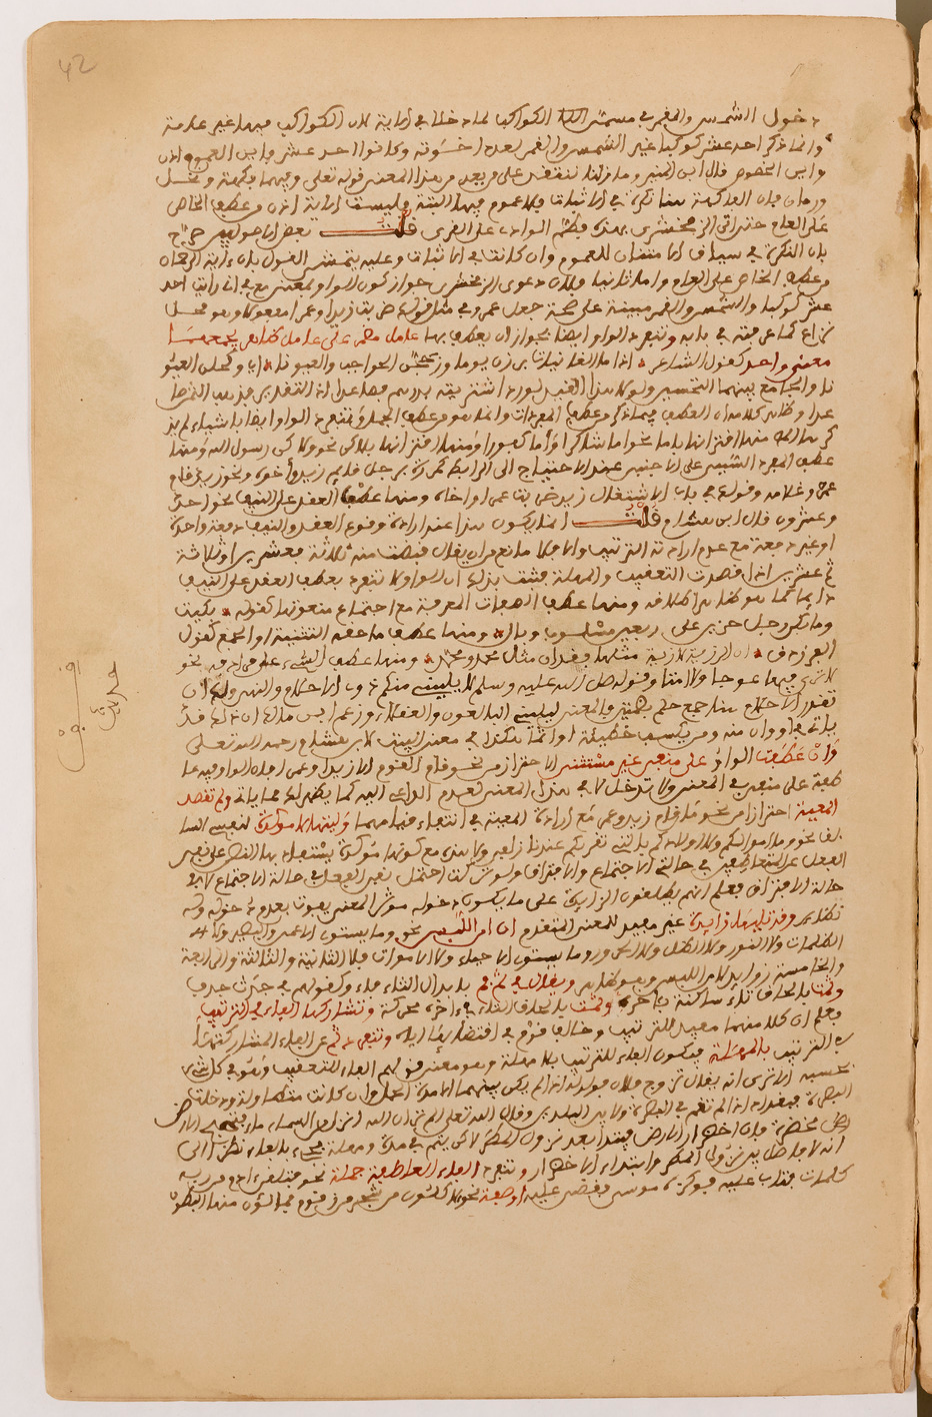 42
دخول الشمس والقمر في مسمى الكواكب لما دخلا في الآية لان الكواكب فيها غير
وانما ذكر احد عشر كوكبا غير الشمس والقمر لعدد اخوته وكانوا احد عشر واين العموم اذن
واين الخصوص قال ابن المنير وما زلنا ننتقد على من يعد من هذا المعنى قوله تعلى فيهما فاكهة ونخل
ورمان فان الفاكهة هنا نكرة في الاثبات فلا عموم فيها البتة فليست الآية اذن من عطف الخاص
على العام حتى اتى الزمخشري بهذه على الفرى قلت بعض الاصوليين صرح
بان النكرة في سياق الامتنان للعموم وان كانت في الاثبات وعليه يتمشى القول بان آية الرحمان
من عطف الخاص على العام واما ثانيا فلان دعوى الزمخشري جواز كون الواو بمعنى مع في اني رايت احد
عشر كوكبا والشمس والقمر مبينة على صحة جعل عمرو في مثل قولك ضربت زيدا وعمرا مفعولا وهو محل
نزاع كما عرفته في بابه وتنفرد الواو ايضا بجواز ان يعطف بها عامل مضمر على عامل ظاهر يجمعهما
معنى واحد كقول الشاعر اذا ما الغانيات برزن يوما وزججن الحواجب والعيونا اي وكحلن العيو
نا والجامع بينهما التحسين ولولا هذا القيد لورد اشتريته بدرهم فصاعدا اذ التقدير فذهب الثمن صا
عدا وظاهر كلامه ان العطف فيما ذكر من عطف المفردات وانما هو من عطف الجمل وتنفرد الواو ايضا باشياء لم يذ
كرها منها اقترانها باما نحو اما شاكرا واما كفورا ومنها اقترانها بلاكن نحو ولاكن رسول الله ومنها
عطف المفرد السببي على الاجنبي عند الاحتياج الى الرابط كمررت برجل قائم زيد واخوه ونحو زيد قام
عمرو وغلامه وقولك في باب الاشتغال زيد ضربت عمرا واخاه ومنها عطف العقد على النيف نحو احد
وعشرون قال ابن هشام قلت انما يكون هذا عند ارادة وقوع العقد والنيف دفعة واحدة
او غير دفعة مع عدم ارادة الترتيب والا فلا مانع من ان يقال قبضت منه ثلاثة فعشرين او ثلاثة
ثم عشرين اذا قصدت التعقيب والمهلة فثبت بذلك ان الواو لا تنفرد بعطف العقد على النيف
دايما كما هو ظاهر اطلاقه ومنها عطف الصفات المفرقة مع اجتماع منعوتها كقوله بكيت
وما بكى رجل حزين على ربعين مسلوب وبال ومنها عطف ما حقه التثنية او الجمع كقول
الفرزدق ان الرزية لا رزية مثلها فقدان مثل محمد ومحمد ومنها عطف الشيء على مرادفه نحو
لا ترى فيها عوجا ولا امتا وقوله صلى الله عليه وسلم ليليني منكم ذووا الاحلام والنهى ولك ان
تقدر الاحلام هنا جمع حلم بضمتين فالمعنى ليليني البالغون والعقلاء وزعم ابن مالك ان ذلك قد
ياتي في او وان منه ومن يكسب خطيئة او اثما هكذا في مغنى اللبيب لابن هشام رحمه الله تعلى
وان عطفت الواو على منفي غير مستثنى احترازا من نحو قام القوم الا زيدا وعمرا فان الواو فيه عا
طفة على منفي في المعنى ولا تدخل لا في هذا المعنى لعدم الداعي اليه كما يظهر لك مما ياتي ولم تقصد
المعية احترازا من نحو ما قام زيد وعمرو مع ارادة المعية في انتفاء قيامهما وليتها لا موكدة لنفي السا
بق نحو وما اموالكم ولا اولادكم بالتي تقربكم عندنا زلفى ولا هذه مع كونها موكدة يستفاد بها النص على نفي
الفعل عن المتعاطفين في حالتي الاجتماع والافتراق ولو سكت احتمل نفي الفعل في حالة الاجتماع لا في
حالة الافتراق فعلم انهم يطلقون الزايدة على ما يكون دخوله موثرا لمعنى يفوت بعدم دخوله وله
نظائر وقد تليها زايدة غير مفيد للمعنى المتقدم ان امن اللبس نحو وما يستوي الاعمى والبصير ولا
الظلمات ولا النور ولا الظل ولا الحرور وما يستوي الاحياء ولا الاموات فلا الثانية والثالثة والرابعة
والخامسة زوايد لامن اللبس وهو ظاهر ويقال في ثم فم بابدال الثاء فاء وكقولهم في جدث جدف
وثمت بالحاق تاء ساكنة بآخره وثمت بالحاق التاء في آخره محركة وتشاركها الفاء في الترتيب
فعلم ان كلا منهما مفيد للترتيب وخالف قوم في اقتضائها اياه وتنفرد ثم عن الفاء المشاركة لها
في الترتيب بالمهلة فتكون الفاء للترتيب بلا مهلة وهو معنى قولهم الفاء للتعقيب وهو في كل شيء
بحسبه الا ترى انه يقال تزوج فلان فولد له اذا لم يكن بينهما الا مدة الحمل وان كانت متطاولة ودخلت
البصرة فبغداد اذا لم تقم في البصرة ولا بين البلدين وقال الله تعلى الم تر ان الله انزل من السماء ماء فتصبح الارض
مخضرة فان اخضرار الارض مبتدأ بعد نزول المطر لاكن يتم في مدة ومهلة فجيء بالفاء نظرا الى
انه لا فاصل بين نزول المطر وابتداء الاخضرار وتنفرد الفاء العاطفة جملة نحو فتلقى آدم من ربه
كلمات فتاب عليه فوكزه موسى فقضى عليه او صفة نحو لاكلون من شجر من زقوم فمالئون منها البطون